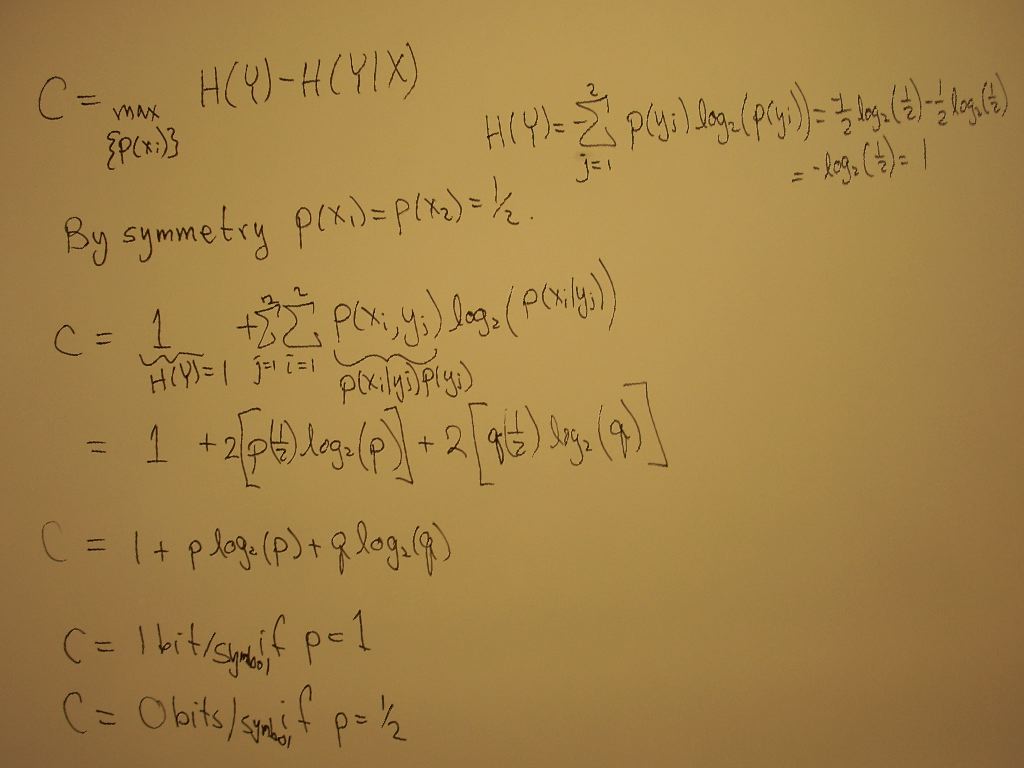 C = max H(Y) - H(Y|X)
{p(xᵢ)}
H(Y) = -∑ p(yⱼ) log₂(p(yⱼ)) = -1/2 log₂(1/2) - 1/2 log₂(1/2)
2
j=1
= -log₂(1/2) = 1
By symmetry p(x₁) = p(x₂) = 1/2.
C = 1 + ∑ ∑ p(xᵢ, yⱼ) log₂(p(xᵢ|yⱼ))
2 2
H(Y) = 1 j=1 i=1 p(xᵢ|yⱼ)p(yⱼ)
= 1 + 2[p(1/2) log₂(p)] + 2[q(1/2) log₂(q)]
C = 1 + p log₂(p) + q log₂(q)
C = 1 bit/symbol if p = 1
C = 0 bits/symbol if p = 1/2